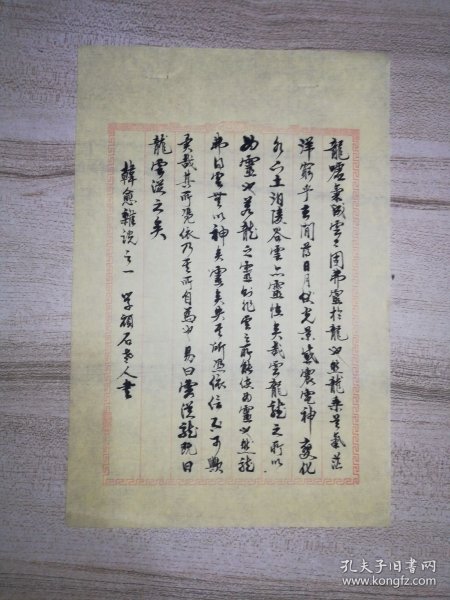 龍噓氣成雲雲固弗靈於龍也然龍乘是氣茫
洋窮乎玄間薄日月伏光景感震電神變化
水下土汩陵谷雲亦靈怪矣哉雲龍之所以
為靈也若龍之靈則非雲之所能使為靈也然龍
弗得雲無以神其靈矣失其所憑依信不可歟
異哉其所憑依乃其所自為也易曰雲從龍既曰
龍雲從之矣
韓愈雜說之一 學顏石老人書
孔夫子旧书网
www.kongfz.com